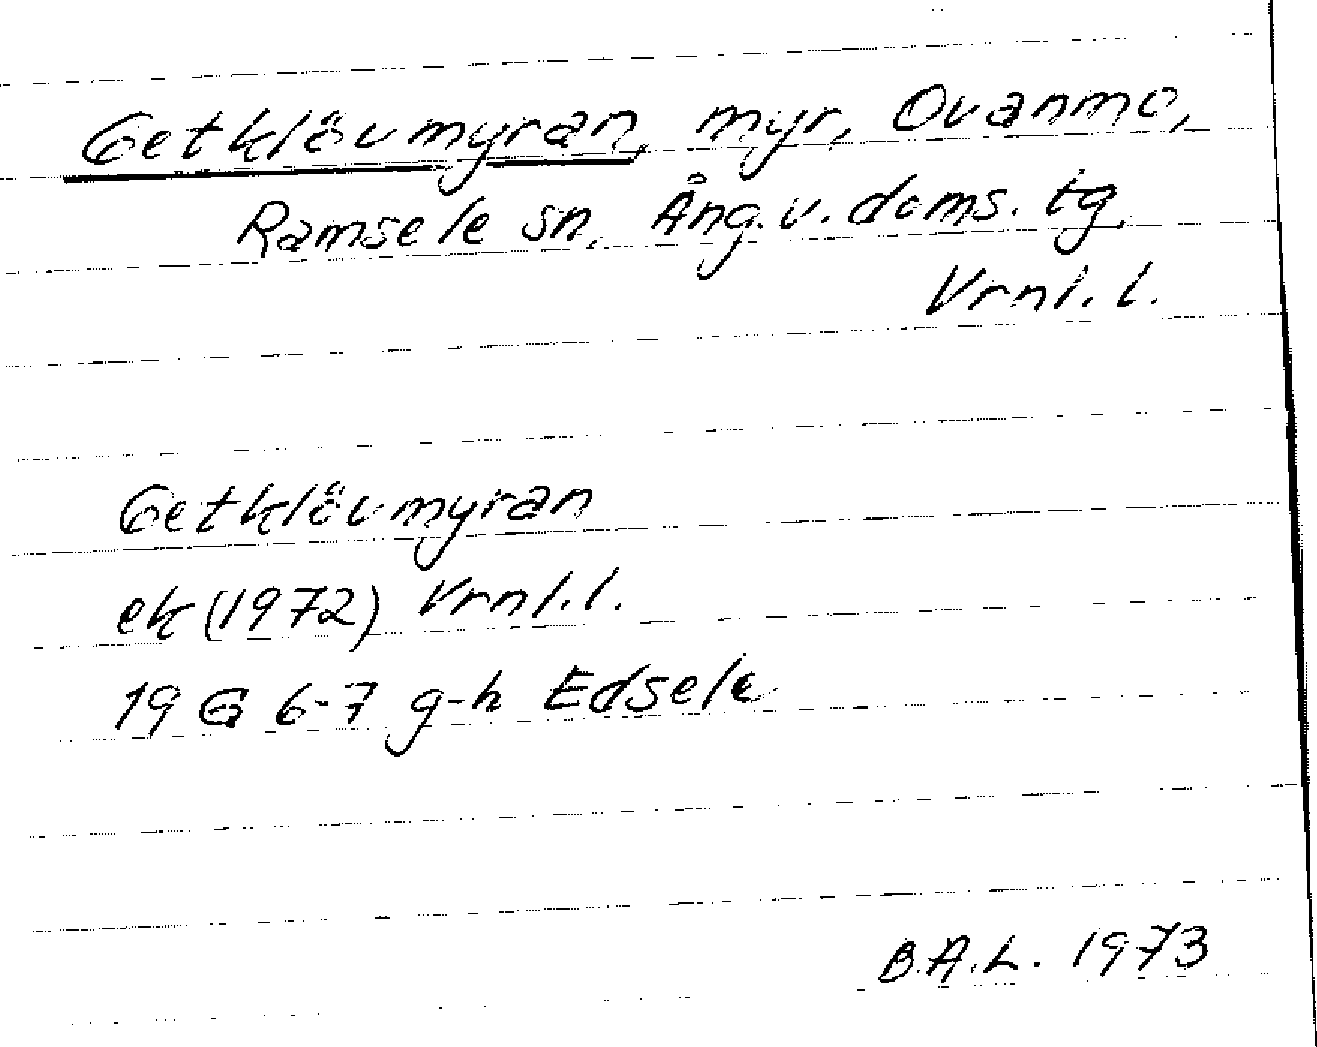 Getklövmyran, myr, Ovanmo,
Ramsele sn, Ång. v. doms. tg
Vrnl. l.
Getklövmyran
ek (1972) Vrnl. l.
19 G 6-7 g-h Edsele
B.A.L. 1973